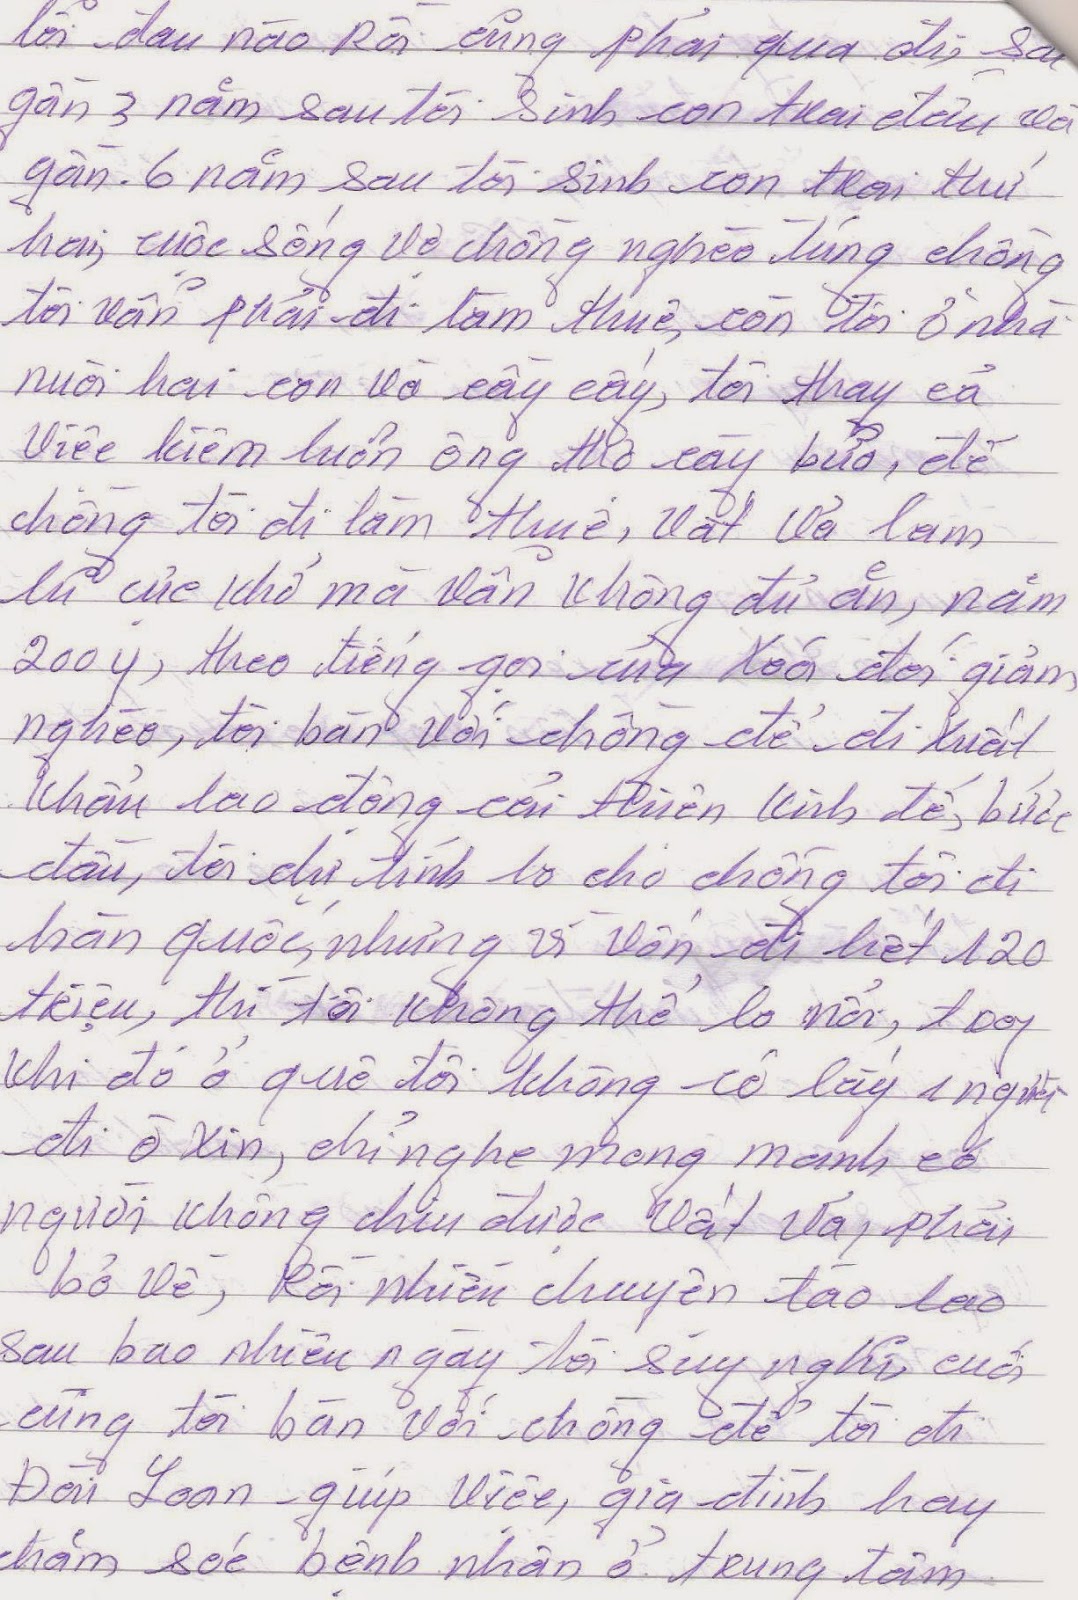 lỗi đau nào Rồi cũng phải qua đi, sau
gần 3 năm sau tôi sinh con trai đầu và
gần 6 năm sau tôi sinh con trai thứ
hai, cuộc sống vợ chồng nghèo túng chồng
tôi vẫn phải đi làm thuê, còn tôi ở nhà
nuôi hai con và cấy cầy, tôi thay cả
việc kiêm luôn ông thợ cày bừa, để
chồng tôi đi làm thuê, vất vả lam
lũ cực khổ mà vẫn không đủ ăn, năm
2004, theo tiếng gọi của Xoá đói giảm
nghèo, tôi bàn với chồng để đi xuất
khẩu lao động cải thiện kinh tế, bước
đầu, tôi dự tính lo cho chồng tôi đi
hàn quốc, nhưng vì vốn đi hết 120
triệu, thì tôi không thể lo nổi,
khi đó ở quê tôi không có lấy 1 người
đi ô Xin, chỉ nghe mong manh có
người không chịu được vất vả, phải
bỏ về, Rồi nhiều chuyện táo lao
sau bao nhiêu ngày tôi suy nghĩ, cuối
cùng tôi bàn với chồng để tôi đi
Đài Loan giúp việc, gia đình hay
chăm sóc bệnh nhân ở trung tâm